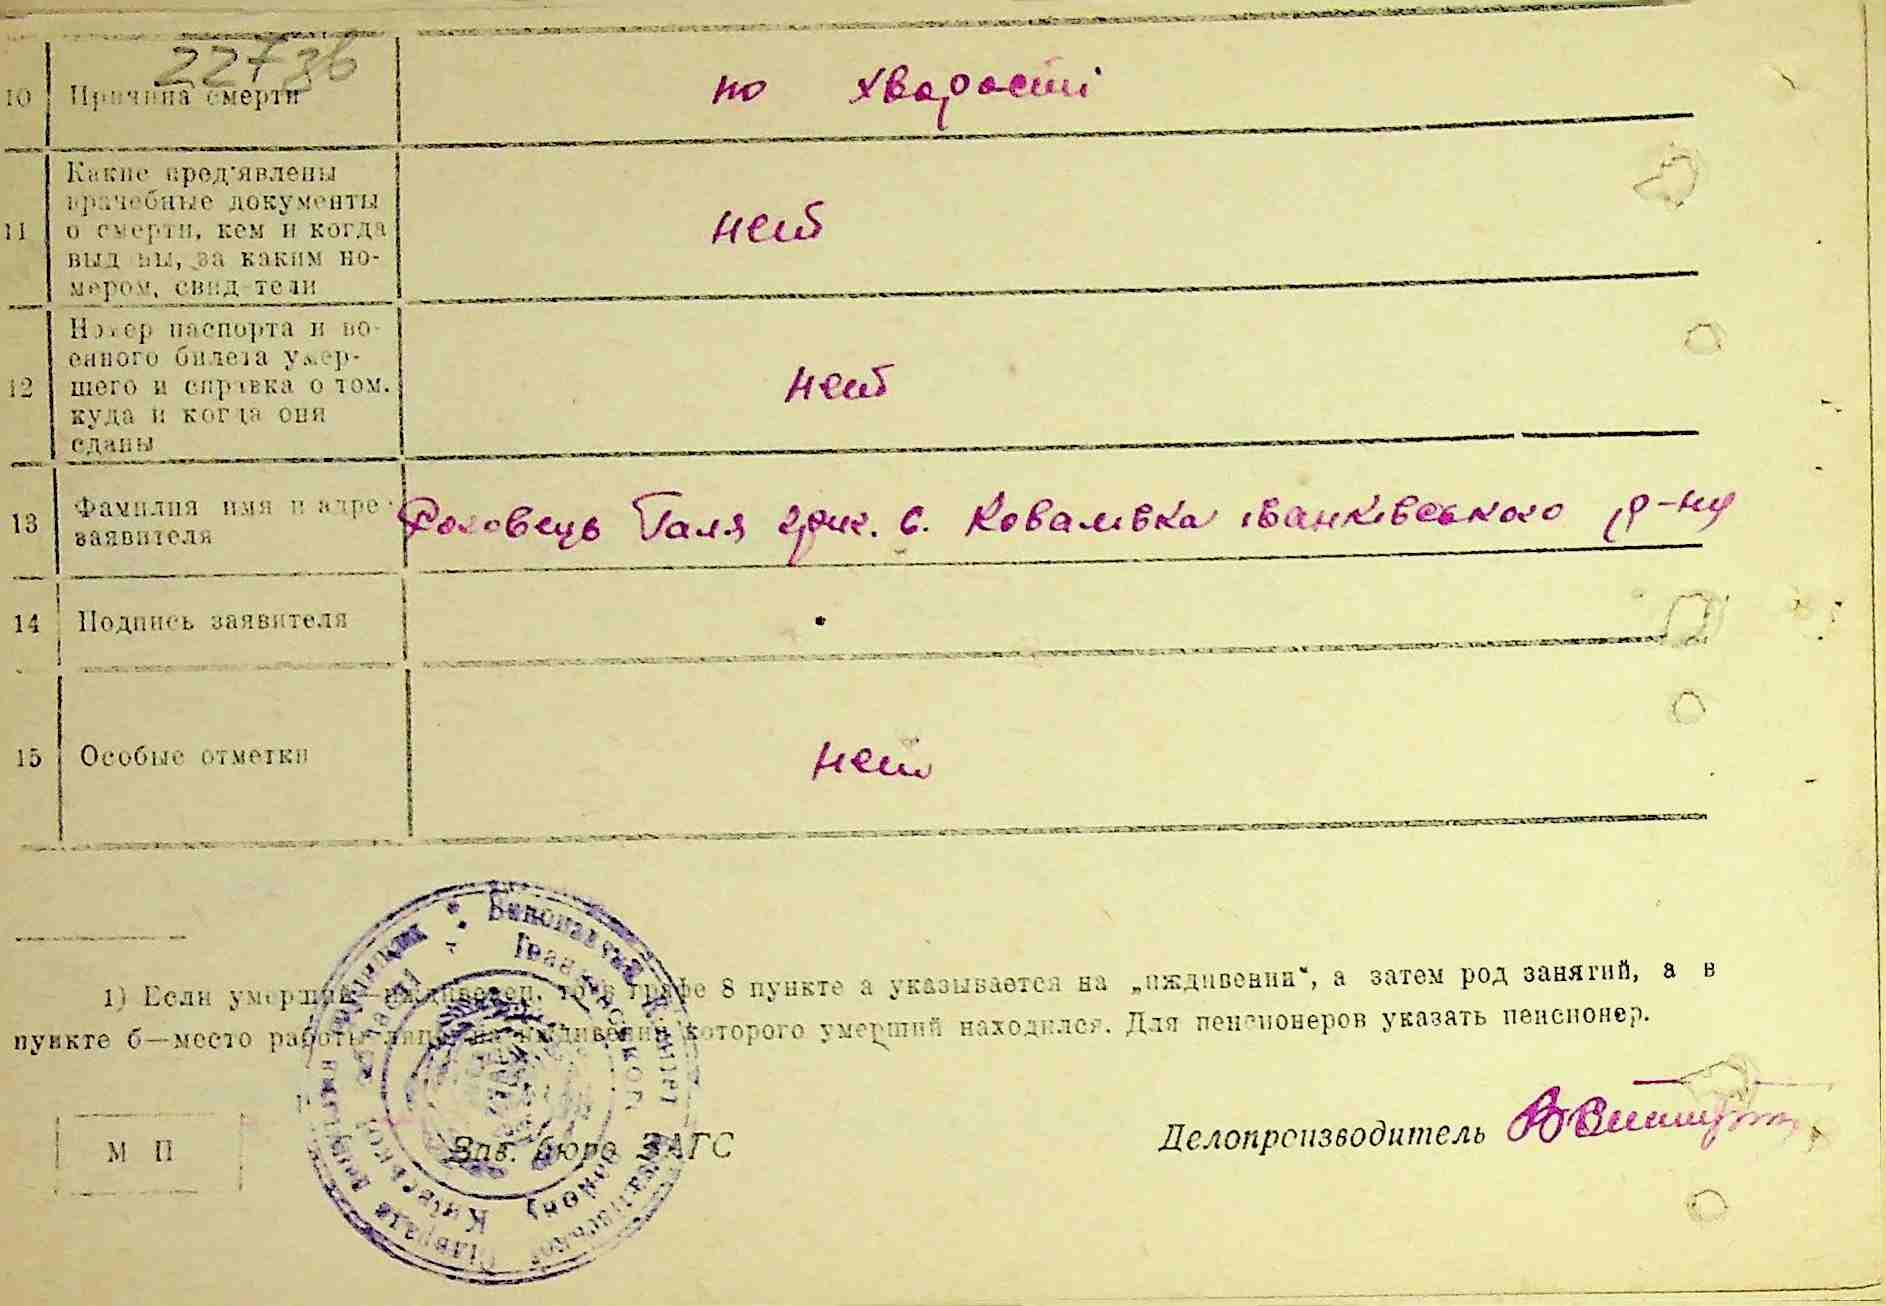 22736
10 Причина смерти по хварості
11 Какие пред'явлены
врачебные документы
о смерти, кем и когда
выд ны, за каким но-
мером, свид тели
нет
12 Номер паспорта и во-
енного билета умер-
шего и справка о том,
куда и когда они
сданы
нет
13 Фамилия имя и адре
заявителя
Роговець Галя с. Ковалівка іванківського р-ну
14 Подпись заявителя
15 Особые отметки нет
1) Если умерший—иждивенец, то в графе 8 пункте а указывается на „иждивении“, а затем род занятий, а в
пункте б—место работы лица на иждивении которого умерший находился. Для пенсионеров указать пенсионер.
М П Зав. бюро ЗАГС Делопроизводитель